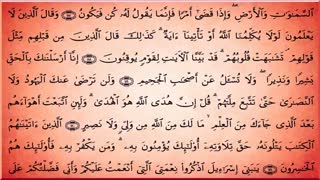 السَّمَٰوَٰتِ وَالْأَرْضِ ۖ وَإِذَا قَضَىٰٓ أَمْرًا فَإِنَّمَا يَقُولُ لَهُۥ كُن فَيَكُونُ ۝ وَقَالَ الَّذِينَ لَا
يَعْلَمُونَ لَوْلَا يُكَلِّمُنَا اللَّهُ أَوْ تَأْتِينَآ ءَايَةٌ ۗ كَذَٰلِكَ قَالَ الَّذِينَ مِن قَبْلِهِم مِّثْلَ
قَوْلِهِمْ ۘ تَشَٰبَهَتْ قُلُوبُهُمْ ۗ قَدْ بَيَّنَّا الْآيَٰتِ لِقَوْمٍ يُوقِنُونَ ۝ إِنَّآ أَرْسَلْنَٰكَ بِالْحَقِّ
بَشِيرًا وَنَذِيرًا ۖ وَلَا تُسْـَٔلُ عَنْ أَصْحَٰبِ الْجَحِيمِ ۝ وَلَن تَرْضَىٰ عَنكَ الْيَهُودُ وَلَا
النَّصَٰرَىٰ حَتَّىٰ تَتَّبِعَ مِلَّتَهُمْ ۗ قُلْ إِنَّ هُدَى اللَّهِ هُوَ الْهُدَىٰ ۗ وَلَئِنِ اتَّبَعْتَ أَهْوَآءَهُم
بَعْدَ الَّذِي جَآءَكَ مِنَ الْعِلْمِ ۙ مَا لَكَ مِنَ اللَّهِ مِن وَلِيٍّ وَلَا نَصِيرٍ ۝ الَّذِينَ ءَاتَيْنَٰهُمُ
الْكِتَٰبَ يَتْلُونَهُۥ حَقَّ تِلَاوَتِهِۦٓ أُولَٰٓئِكَ يُؤْمِنُونَ بِهِۦ ۗ وَمَن يَكْفُرْ بِهِۦ فَأُولَٰٓئِكَ هُمُ
الْخَٰسِرُونَ ۝ يَٰبَنِيٓ إِسْرَٰٓءِيلَ اذْكُرُوا نِعْمَتِيَ الَّتِيٓ أَنْعَمْتُ عَلَيْكُمْ وَأَنِّي فَضَّلْتُكُمْ عَلَى